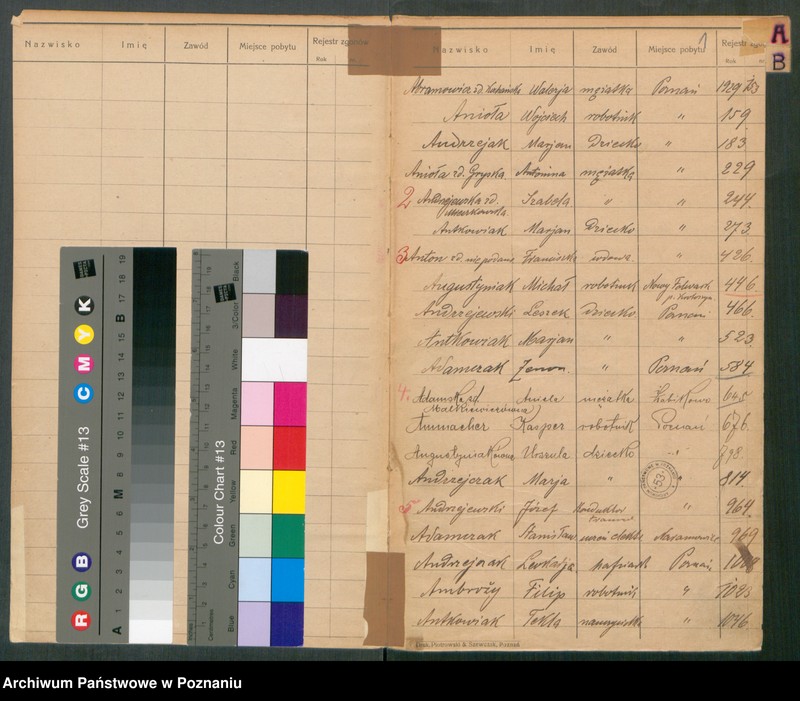 Nazwisko Imię Zawód Miejsce pobytu Rejestr zgonów
Rok nr.
Nazwisko Imię Zawód Miejsce pobytu 1 Rejestr
Rok
A
B
Abramowicz zd. Walerja mężatka Poznań 1929
Anioła Wojciech robotnik " 159
Andrzejak Marjan Dziecko " 183
Anioła zd. Gryska Antonina mężatka " 229
2 Andrzejewska zd. Izabela " " 244
Antkowiak Marjan Dziecko " 273
3 Anton zd. nie podano Franciszka wdowa " 426
Augustyniak Michał robotnik Nowy Folwark 446
Andrzejewski Leszek Dziecko Poznań 466
Antkowiak Marjan " " 523
Adamczak Zenon " Poznań 584
4. Adamska zd. Aniela mężatka 645
Małkiewiczówna
Ammacher Kasper robotnik Poznań 676
Augustyniakówna Urszula dziecko " 798
Andrzejczak Marja " 814
5 Andrzejewski Józef Konduktor 964
Adamczak Stanisław Naramowice 969
Andrzejczak Leokadja Poznań
Ambroży Filip robotnik " 1025
Antkowiak Tekla " 1046
Druk. Piotrowski & Szewczuk, Poznań
Grey Scale #13
R G B
C M Y K
A 1 2 3 4 5 6 M 8 9 10 11 12 13 14 15 B 17 18 19
Colour Chart #13
Blue Cyan Green Yellow Red Magenta White 3/Color Black
Inches
Centimetres
Archiwum Państwowe w Poznaniu